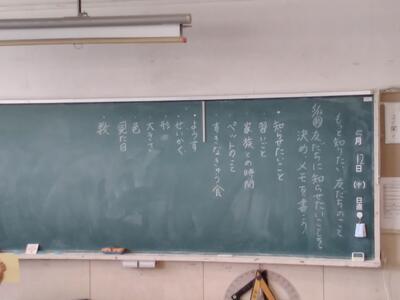 月 日(水) 日直
もっと知りたい 友だちのこと
友だちに知らせたいことを
決め、メモを書こう。
・知らせたいこと
・習いごと
・家族との時間
・ペットのこと
・すきなきゅう食
・ようす
・せいかく
・形
・大きさ
・色
・見た目
・数